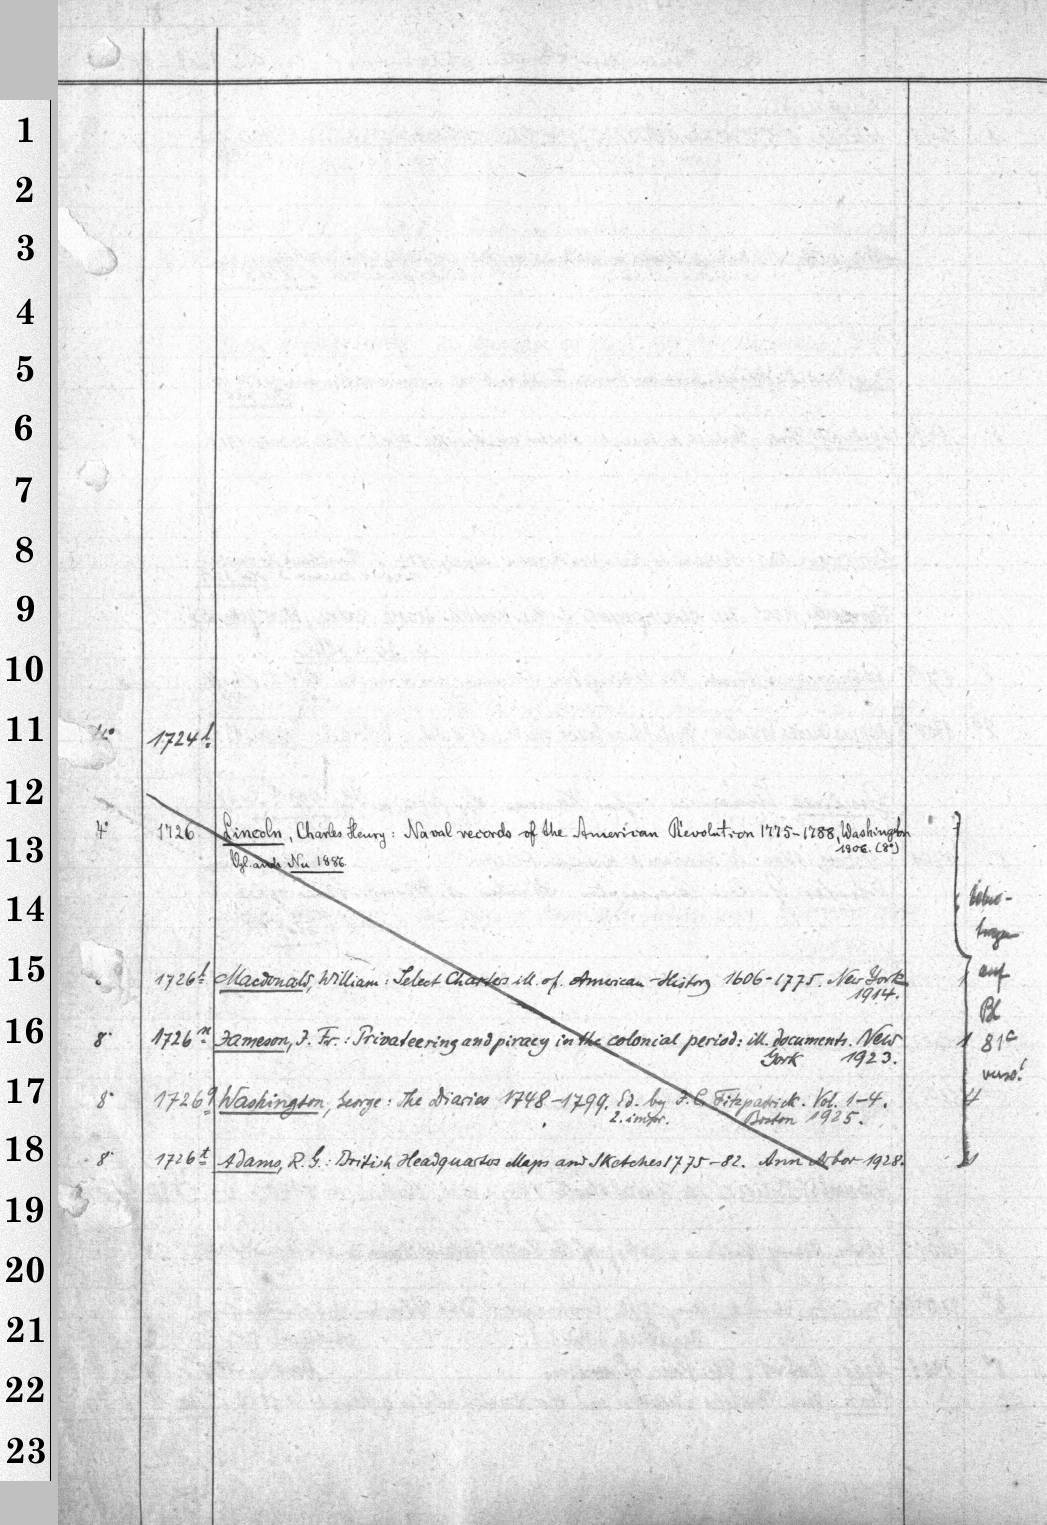 1
2
3
4
5
6
7
8
9
10
11
4° 1724 l.
12
4° 1726 Lincoln, Charles Henry: Naval records of the American Revolution 1775-1788, Washington
1906. (8°)
13
Vgl. auch Nu 1886
14
Uebertragen
15
1726 l Macdonald, William: Select Charters ill. of American History 1606-1775. New York
auf
1914.
Bl
16
8° 1726 n Jameson, J. Fr.: Privateering and piracy in the colonial period: ill. documents. New 1 81a
York 1923.
verso!
17
8° 1726 q Washington, George: The Diaries 1748-1799. Ed. by J. C. Fitzpatrick. Vol. 1-4. 4
2. impr. Boston 1925.
18
8° 1726 t Adams, R. G.: British Headquarters Maps and Sketches 1775-82. Ann Arbor 1928.
19
20
21
22
23